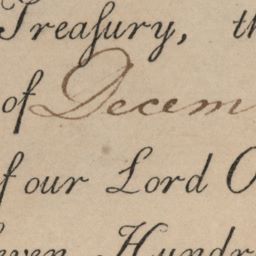 Treaſury, th
of Decem
f our Lord O
ſeven Hundr